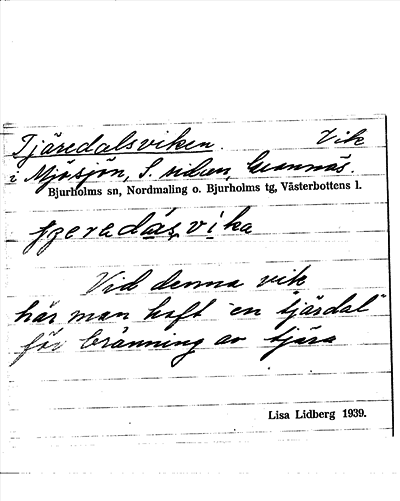 Tjäredalsviken. Vik
i Mjösjön, S. sidan, Grannäs.
Bjurholms sn, Nordmaling o. Bjurholms tg, Västerbottens l.
çeredásvika
Vid denna vik
har man haft "en tjärdal"
för bränning av tjära
Lisa Lidberg 1939.